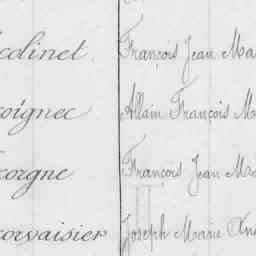 colinet François Jean Ma
oignec Allain François Ma
orgne François Jean Ma
orvaisier Joseph Marie Ang